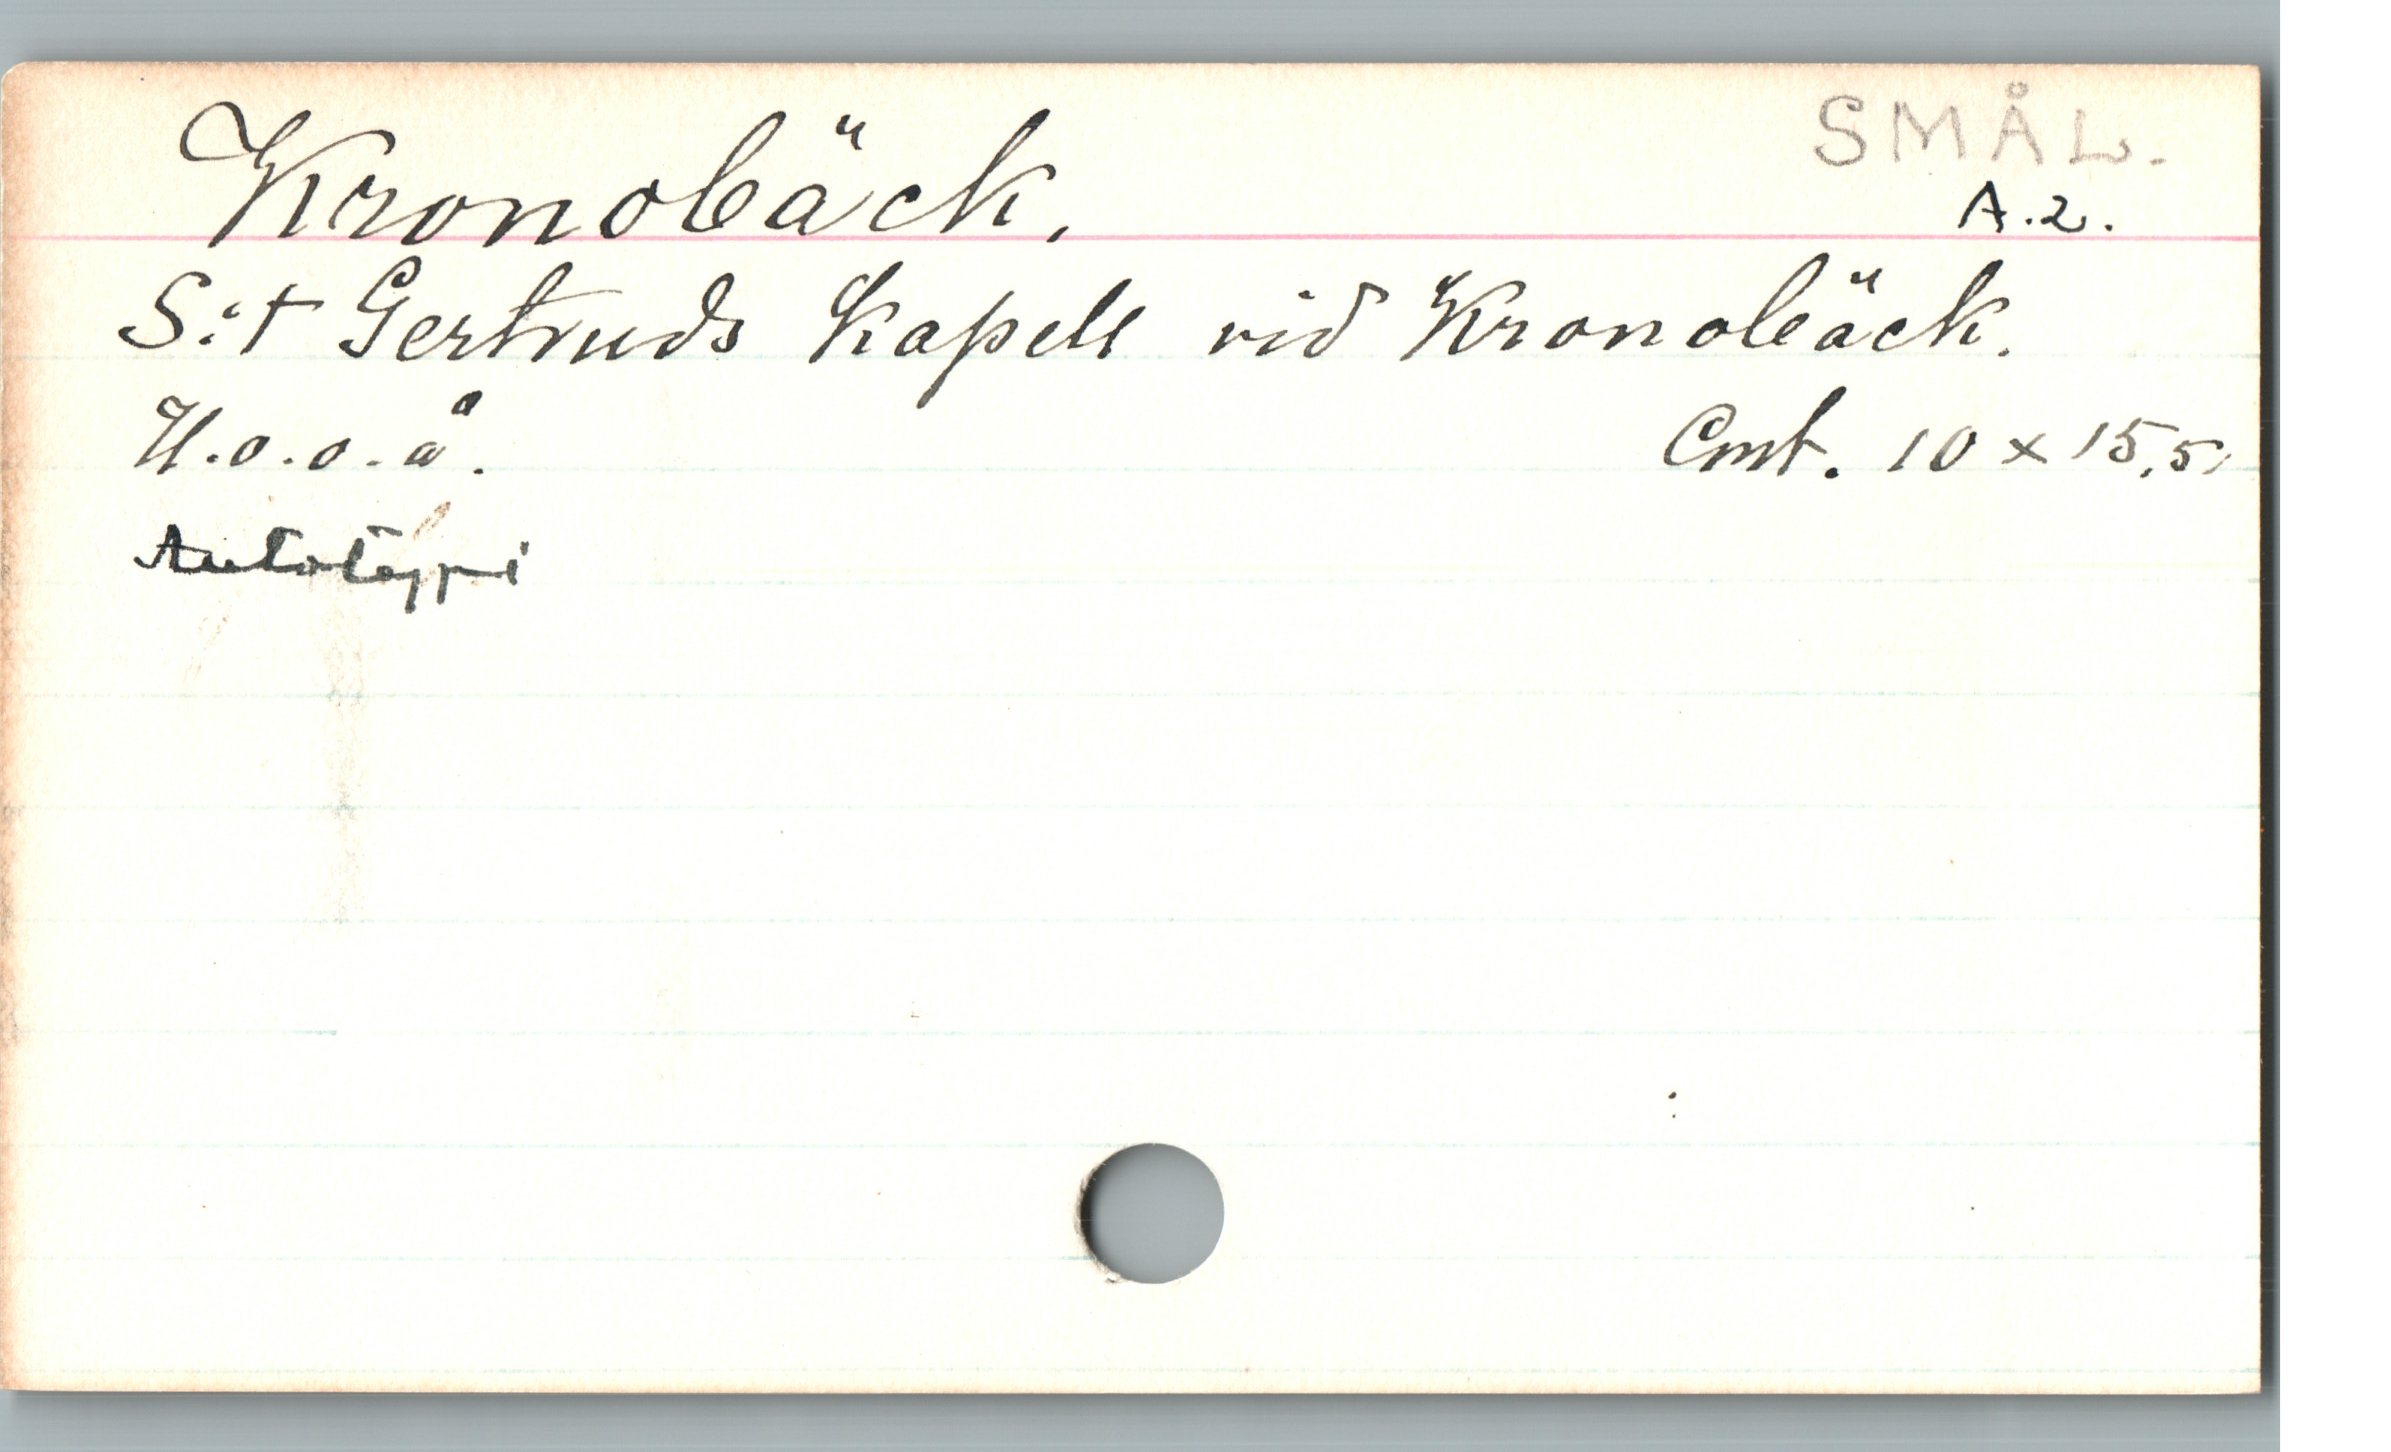 Kronobäck. SMÅL.
A.2.
S:t Gertruds Kapell vid Kronobäck.
U.o.o.å. Cmt. 10 x 15,5.
Autotypi